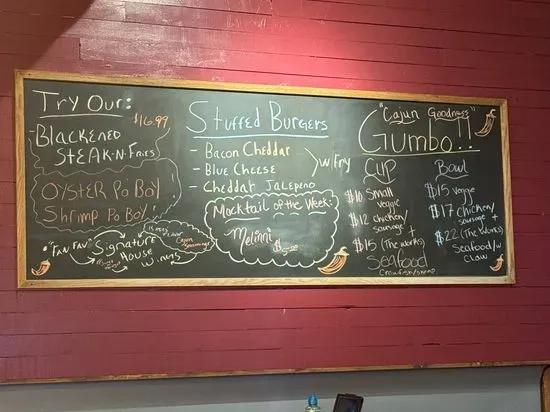 Try Our:
$16.99
- Blackened
Steak-N-Fries
Oyster Po Boy
Shrimp Po Boy
"Fan Fav"
Signature
House
Wings
Stuffed Burgers
- Bacon Cheddar
- Blue Cheese
- Cheddar Jalepeno
w/Fry
Mocktail of the Week:
$5.00
"Cajun Goodness"
Gumbo!!
Cup
$10 Small
Veggie
$12 Chicken/
Sausage
$15 (The Works)
Seafood
Bowl
$15 Veggie
$17 Chicken/
Sausage
$22 (The Works)
Seafood/w
Claw